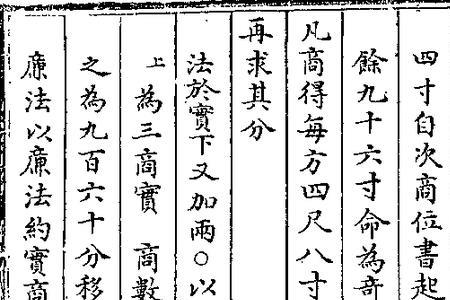 四寸自次商位書起
餘九十六寸命為竒
凡商得每方四尺八寸
再求其分
法於實下又加兩○以
上為三商實 商數
之為九百六十分移
廉法以廉法約實商